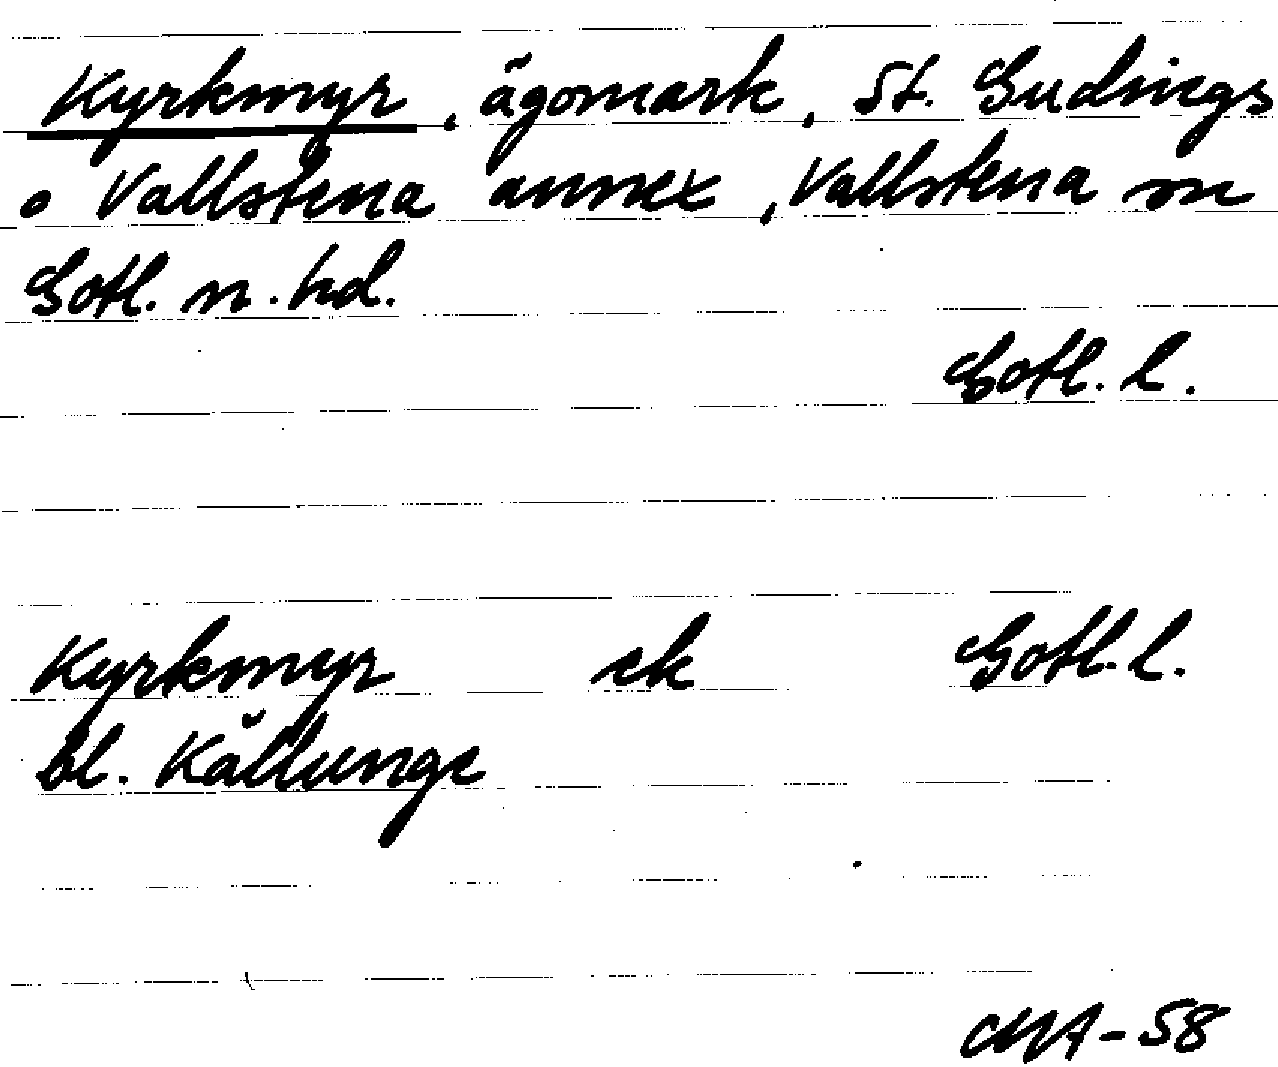 Kyrkmyr, ägomark, St. Gudings
o Vallstena annex, Vallstena sn
Gotl. n. hd.
Gotl. l.
Kyrkmyr ek Gotl. l.
bl. Källunge
MA-58